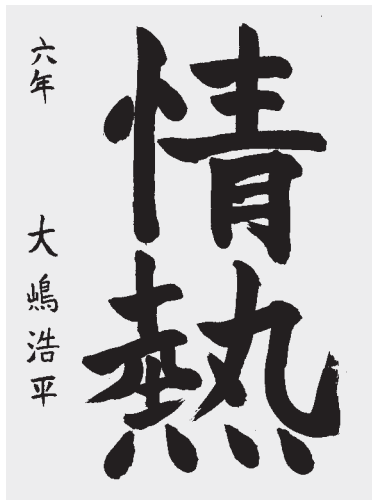 情熱
六年 大嶋浩平